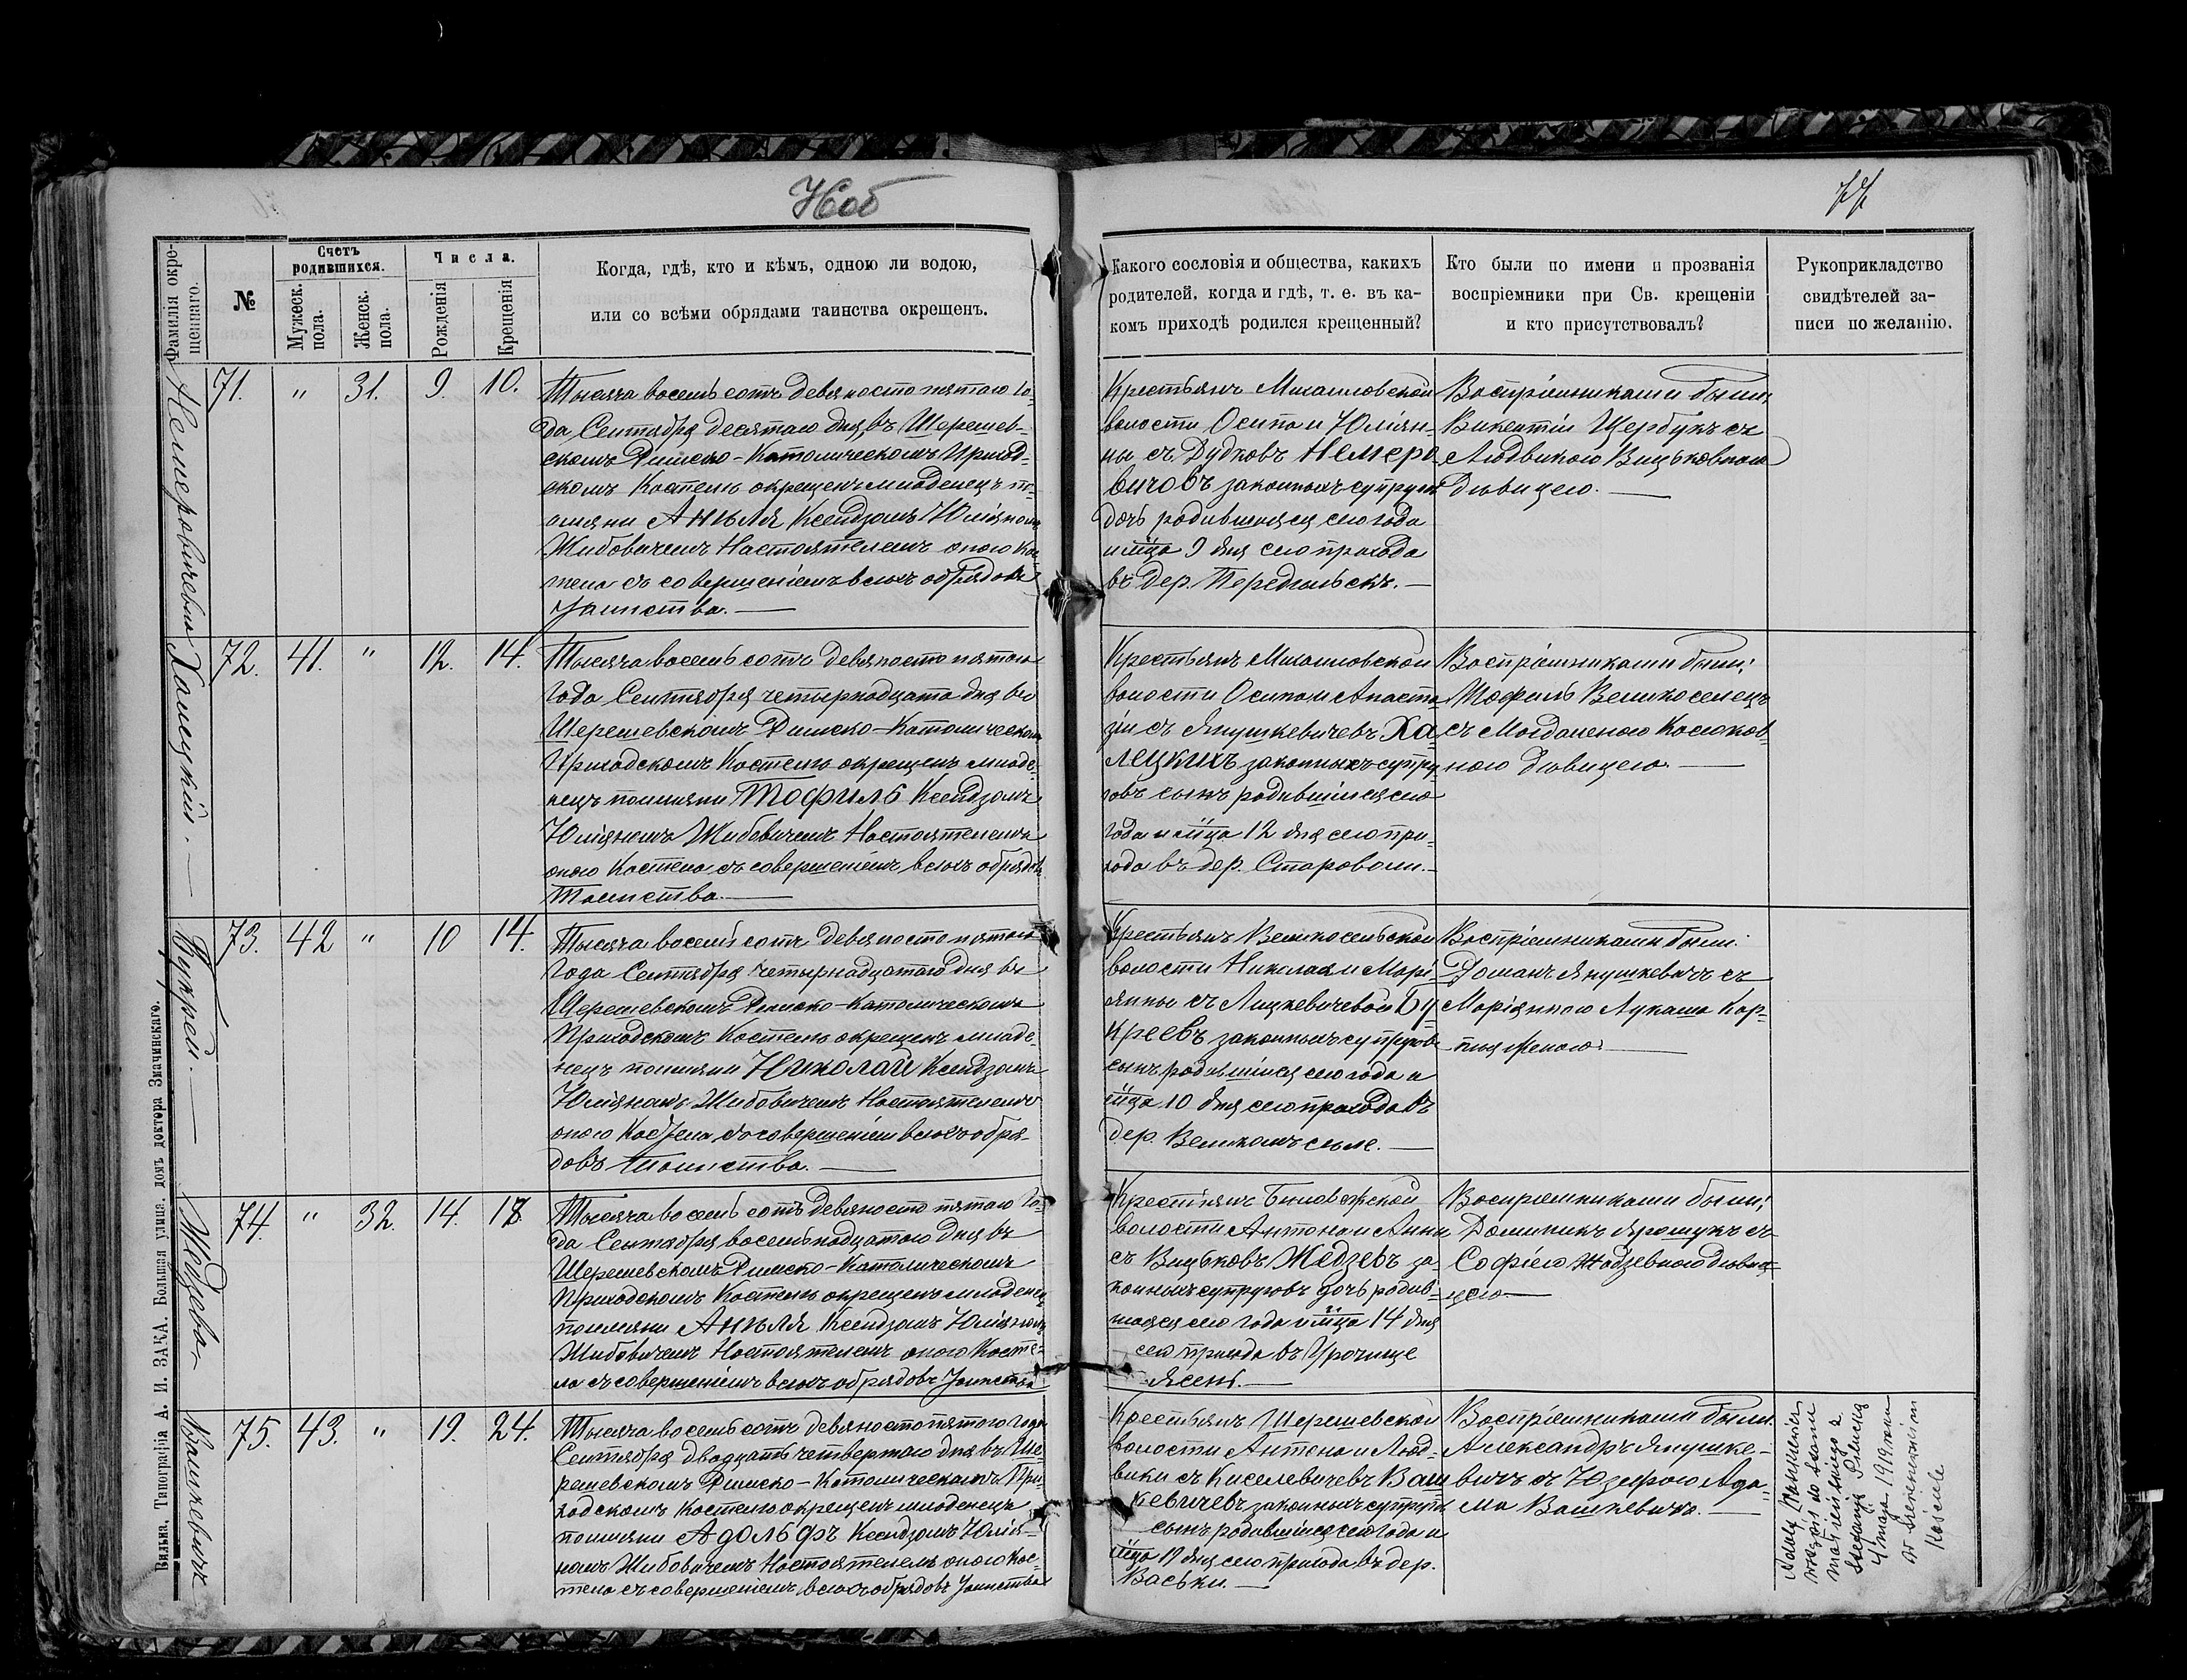 Ноб
77
Фамилія окре-
щеннаго.
№
Счетъ
родившихся.
Мужеск.
пола.
Женск.
пола.
Числа.
Рожденія
Крещенія
Когда, гдѣ, кто и кѣмъ, одною ли водою,
или со всѣми обрядами таинства окрещенъ.
Какого сословія и общества, какихъ
родителей, когда и гдѣ, т. е. въ ка-
комъ приходѣ родился крещенный?
Кто были по имени и прозванія
воспріемники при Св. крещеніи
и кто присутствовалъ?
Рукоприкладство
свидѣтелей за-
писи по желанію.
Немеровичевна
71. " 31. 9. 10.
Тысяча восемь сотъ девяносто пятаго го-
да Сентября десятаго дня, въ Шерешев-
скомъ Римско-Католическомъ Приход-
скомъ Костелѣ окрещенъ младенецъ по
имяни Анѣля Ксендзомъ Юліяномъ
Жибовичемъ Настоятелемъ оного Кос
тела съ совершеніемъ всѣхъ обрядовъ
Таинства. —
Крестьянъ Михайловской
волости Осипа и Юліян-
ны съ Дудковъ Немеро
вичовъ законныхъ супруговъ
дочь родившаяся сего года
и мца 9 дня сего прихода
въ дер. Передѣльскъ. —
Воспріемниками были:
Викентій Щербукъ съ
Людвикою Вицьковною
дѣвицею. —
Халецкій. —
72. 41. " 12. 14.
Тысяча восемь сотъ девяносто пятаго
года Сентября четырнадцата дня въ
Шерешевскомъ Римско-Католическомъ
Приходскомъ Костелѣ окрещенъ младе-
нецъ по имяни Тофиль Ксендзомъ
Юліяномъ Жибовичемъ Настоятелемъ
оного Костела съ совершеніемъ всѣхъ обрядовъ
Таинства. —
Крестьянъ Михайловской
волости Осипа и Анаста
зіи съ Янушкевичевъ Ха-
лецкихъ законныхъ супру
говъ сынъ родившійся сего
года и мца 12 дня сего при-
хода въ дер. Староволи. —
Воспріемниками были:
Тофиль Великоселецъ
съ Магдаленою
ною дѣвицею. —
Букрей. —
73. 42 " 10 14.
Тысяча восемь сотъ девяносто пятаго
года Сентября четырнадцатаго дня въ
Шерешевскомъ Римско-Католическомъ
Приходскомъ Костелѣ окрещенъ младе-
нецъ по имяни Николай Ксендзомъ
Юліяномъ Жибовичемъ Настоятелемъ
оного Костела съ совершеніемъ всѣхъ обря-
довъ Таинства. —
Крестьянъ Великосельской
волости Николая и Марі
янны съ Лицкевичевой Бу
креевъ законныхъ супруговъ
сынъ родившійся сего года и
мца 10 дня сего прихода въ
дер. Великомъ селе. —
Воспріемниками были:
Романъ Янушкевичъ съ
Маріянною Лукаша Кар-
женою. —
Жедзева
74. " 32. 14. 18.
Тысяча восемь сотъ девяносто пятаго го-
да Сентября восемьнадцатаго дня въ
Шерешевскомъ Римско-Католическомъ
Приходскомъ Костелѣ окрещенъ младенец
по имяни Анѣля Ксендзомъ Юліяномъ
Жибовичемъ Настоятелемъ оного Косте-
ла съ совершеніемъ всѣхъ обрядовъ Таинства
Крестьянъ Бѣловѣжской
волости Антона и Анны
съ Вицьковъ Жедзевъ за
конныхъ супруговъ дочь родив-
шаяся сего года и мца 14 дня
сего прихода въ Урочище
Ясень. —
Воспріемниками были:
Доминикъ Ярошукъ съ
Софіею Жадзевною дѣви
цею —
Вашкевичъ
75. 43. " 19. 24.
Тысяча восемь сотъ девяносто пятаго года
Сентября двадцать четвертаго дня въ Ше-
решевскомъ Римско-Католическомъ При-
ходскомъ Костелѣ окрещенъ младенецъ
по имяни Адольфъ Ксендзомъ Юлія-
номъ Жибовичемъ Настоятелемъ оного Кос-
тела съ совершеніемъ всѣхъ обрядовъ Таинства
Крестьянъ Шерешевской
волости Антона и Люд-
вики съ Киселевичевъ Ваш
кевичевъ законныхъ супруговъ
сынъ родившійся сего года и
мца 19 дня сего прихода въ дер.
Васьки. —
Воспріемниками были:
Александръ Янушке-
вичъ съ Юзефою Ада-
ма Вашкевича. —
4 maja 1919 roku
Kościele
Вильна, Типографія А. И. ЗАКА. Большая улица. домъ доктора Значинскаго.